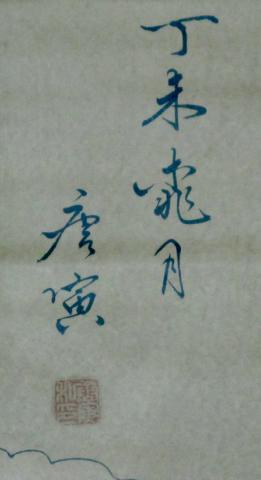 丁未月
唐寅